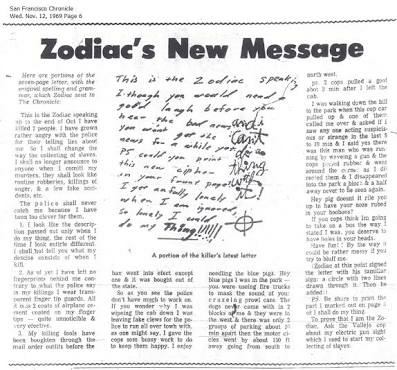 San Francisco Chronicle
Wed. Nov. 12, 1969 Page 6
Zodiac's New Message
Here are portions of the
seven-page letter, with the
original spelling and gram-
mar, which Zodiac sent to
The Chronicle:
This is the Zodiac speaking
up to the end of Oct I have
killed 7 people. I have grown
rather angry with the police
for their telling lies about
me. So I shall change the
way the collecting of slaves.
I shall no longer announce to
anyone when I comitt my
murders, they shall look like
routine robberies, killings of
anger, & a few fake acci-
dents, etc.
The police shall never
catch me because I have
been too clever for them.
1. I look like the descrip-
tion passed out only when I
do my thing, the rest of the
time I look entirle different.
I shall not tell you what my
descise consists of when I
kill.
2. As of yet I have left no
fingerprints behind me con-
trary to what the police say
in my killings I wear trans-
parent finger tip guards. All
it is is 2 coats of airplane ce-
ment coated on my finger
tips — quite unnoticible &
very efective.
3. My killing tools have
been boughten through the
mail order outfits before the
This is the Zodiac speaking
I though you would need a
good laugh before you
hear the bad news
you won't get the
news for a while yet
PS could you print
this new cipher
in your frunt page?
I get awfully lonely
when I am ignored,
so lonely I could
do my Thing!!!!!!
and i
can't
do a
thing
with
it!
A portion of the killer's latest letter
ban went into efect except
one & it was bought out of
the state.
So as you see the police
don't have much to work on.
If you wonder why I was
wipeing the cab down I was
leaving fake clews for the po-
lice to run all over town with,
as one might say, I gave the
cops som bussy work to do
to keep them happy. I enjoy
needling the blue pigs. Hey
blue pigs I was in the park —
you were useing fire trucks
to mask the sound of your
cruzeing prowl cars. The
dogs never came with in 2
blocks of me & they were to
the west & there was only 2
groups of parking about 10
min apart then the motor ci-
cles went by about 150 ft
away going from south to
north west.
ps. 2 cops pulled a goof
abot 3 min after I left the
cab.
I was walking down the hill
to the park when this cop car
pulled up & one of them
called me over & asked if I
saw any one acting suspicis-
ous or strange in the last 5
to 10 min & I said yes there
was this man who was run-
ning by waveing a gun & the
cops peeled rubber & went
around the corner as I di-
rected them & I disappeared
into the park a block & a half
away never to be seen again.
Hey pig doesnt it rile you
up to have your noze rubed
in your booboos?
If you cops think Im going
to take on a bus the way I
stated I was, you deserve to
have holes in your heads.
Have fun! By the way it
could be rather messy if you
try to bluff me.
(Zodiac at this point signed
the letter with his familiar
sign: a circle with two lines
drawn through it. Then he
added:
PS. Be shure to print the
part I marked out on page 3
or I shall do my thing.
To prove that I am the Zo-
diac, Ask the Vallejo cop
about my electric gun sight
which I used to start my col-
lecting of slaves.